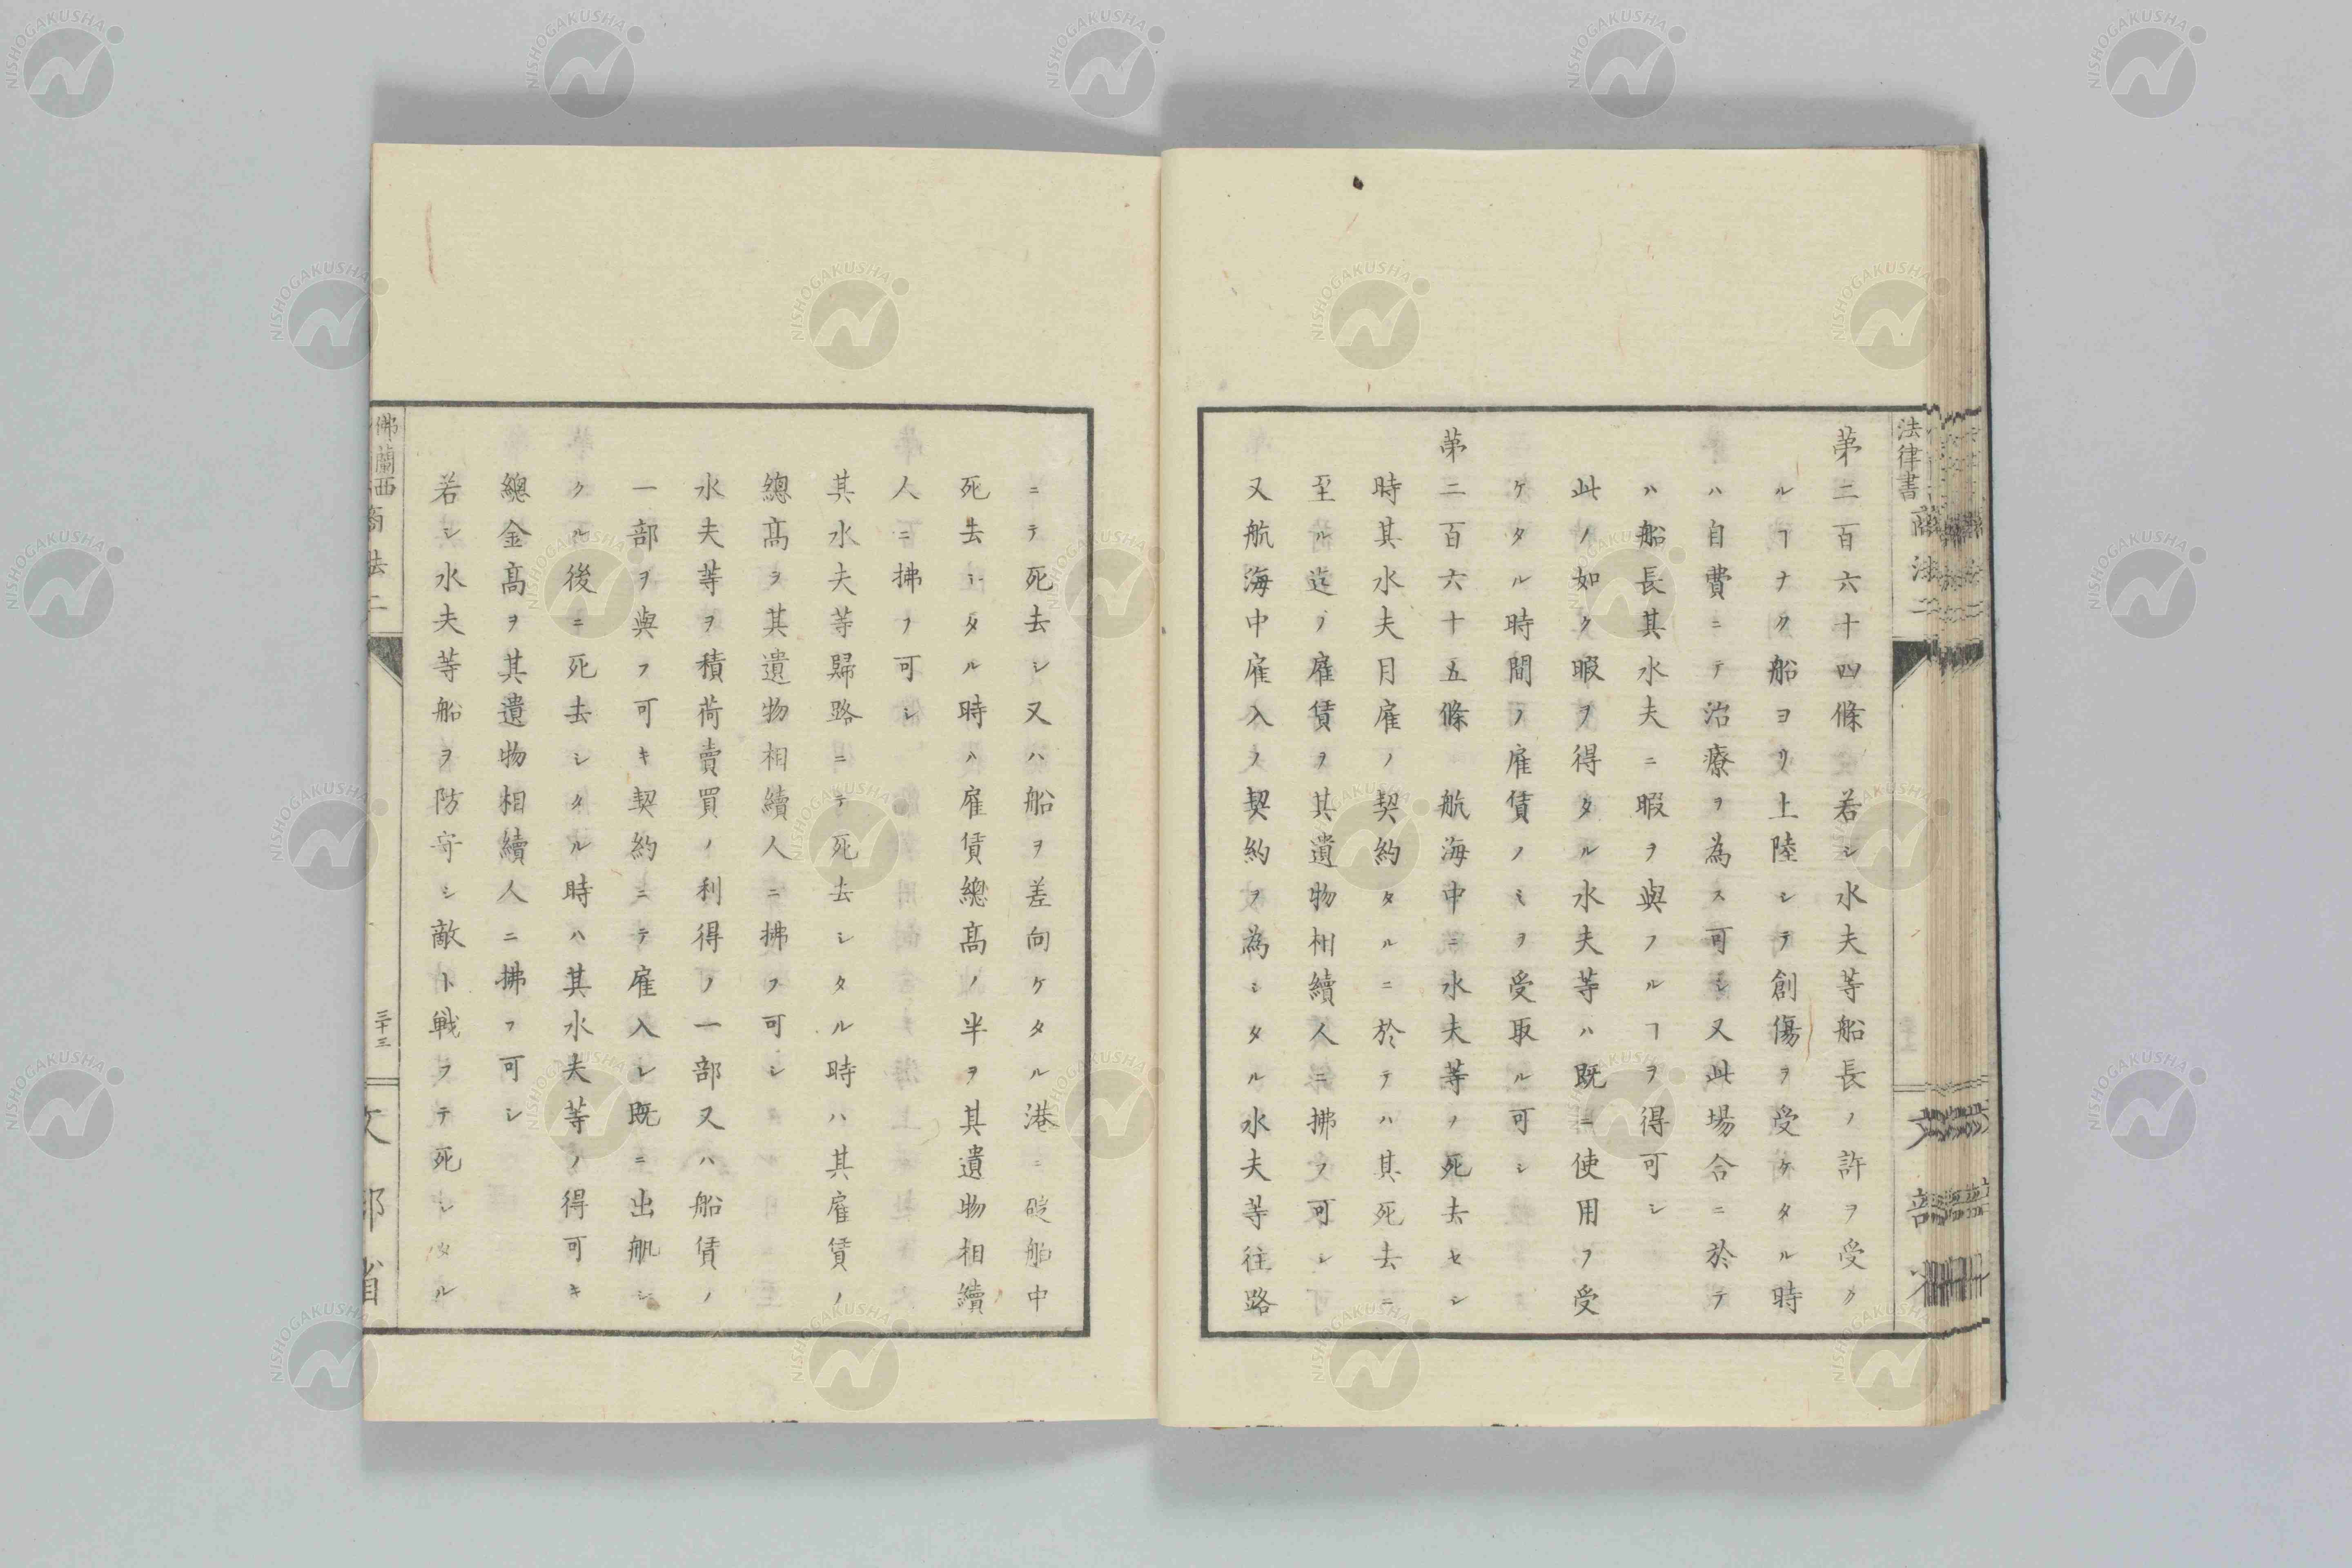 第二百六十四條 若シ水夫等船長ノ許ヲ受ク
ルヿナク船ヨリ上陸シテ創傷ヲ受ケタル時
ハ自費ニテ治療ヲ為ス可シ又此場合ニ於テ
ハ船長其水夫ニ暇ヲ與フルヿヲ得可シ
此ノ如ク暇ヲ得タル水夫等ハ既ニ使用ヲ受
ケタル時間ノ雇賃ノミヲ受取ル可シ
第二百六十五條 航海中ニ水夫等ノ死去セシ
時其水夫月雇ノ契約タルニ於テハ其死去ニ
至ル迄ノ雇賃ヲ其遺物相續人ニ拂フ可シ
又航海中雇入ノ契約ヲ為シタル水夫等往路
ニテ死去シ又ハ船ヲ差向ケタル港ニ碇舶中
死去シタル時ハ雇賃總高ノ半ヲ其遺物相續
人ニ拂フ可シ
其水夫等歸路ニテ死去シタル時ハ其雇賃ノ
總髙ヲ其遺物相續人ニ拂フ可シ
水夫等ヲ積荷賣買ノ利得ノ一部又ハ船賃ノ
一部ヲ與フ可キ契約ニテ雇入レ既ニ出帆シ
タル後ニ死去シタル時ハ其水夫等ノ得可キ
總金髙ヲ其遺物相續人ニ拂フ可シ
若シ水夫等船ヲ防守シ敵ト戦フテ死シタル
法律書 商法二
文部省
佛蘭西商法二
三十三
文部省
NISHOGAKUSHA